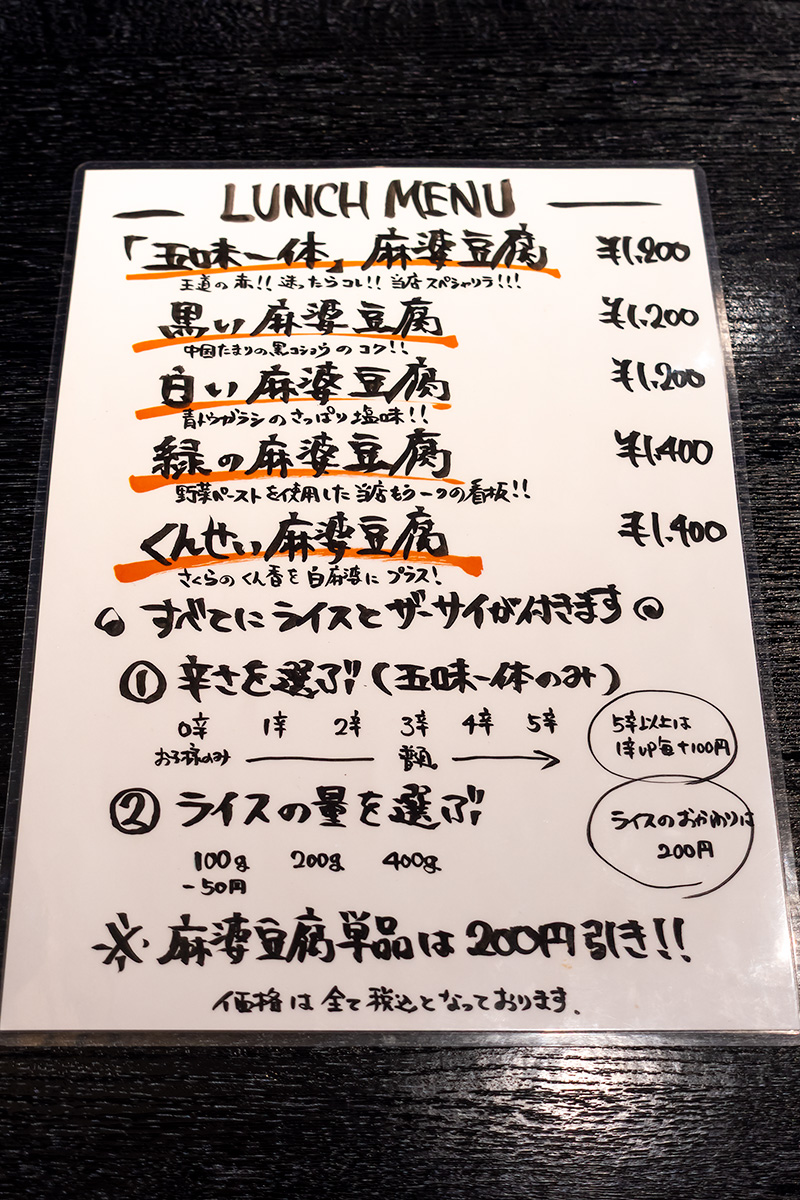 LUNCH MENU
「五味一体」麻婆豆腐 ¥1,200
王道の赤!! 迷ったらコレ!! 当店スペシャリテ!!!
黒い麻婆豆腐 ¥1,200
中国たまりの、黒コショウのコク!!
白い麻婆豆腐 ¥1,200
青トウガラシのさっぱり塩味!!
緑の麻婆豆腐 ¥1,400
野菜ペーストを使用した当店もう一つの看板!!
くんせい麻婆豆腐 ¥1,400
さくらのくん香を白麻婆にプラス!
すべてにライスとザーサイが付きます
① 辛さを選ぶ!!(五味一体のみ)
0辛 1辛 2辛 3辛 4辛 5辛
お子様のみ 普通
5辛以上は
1辛up毎+100円
② ライスの量を選ぶ!!
100g 200g 400g
-50円
ライスのおかわりは
200円
※麻婆豆腐単品は200円引き!!
価格は全て税込となっております。